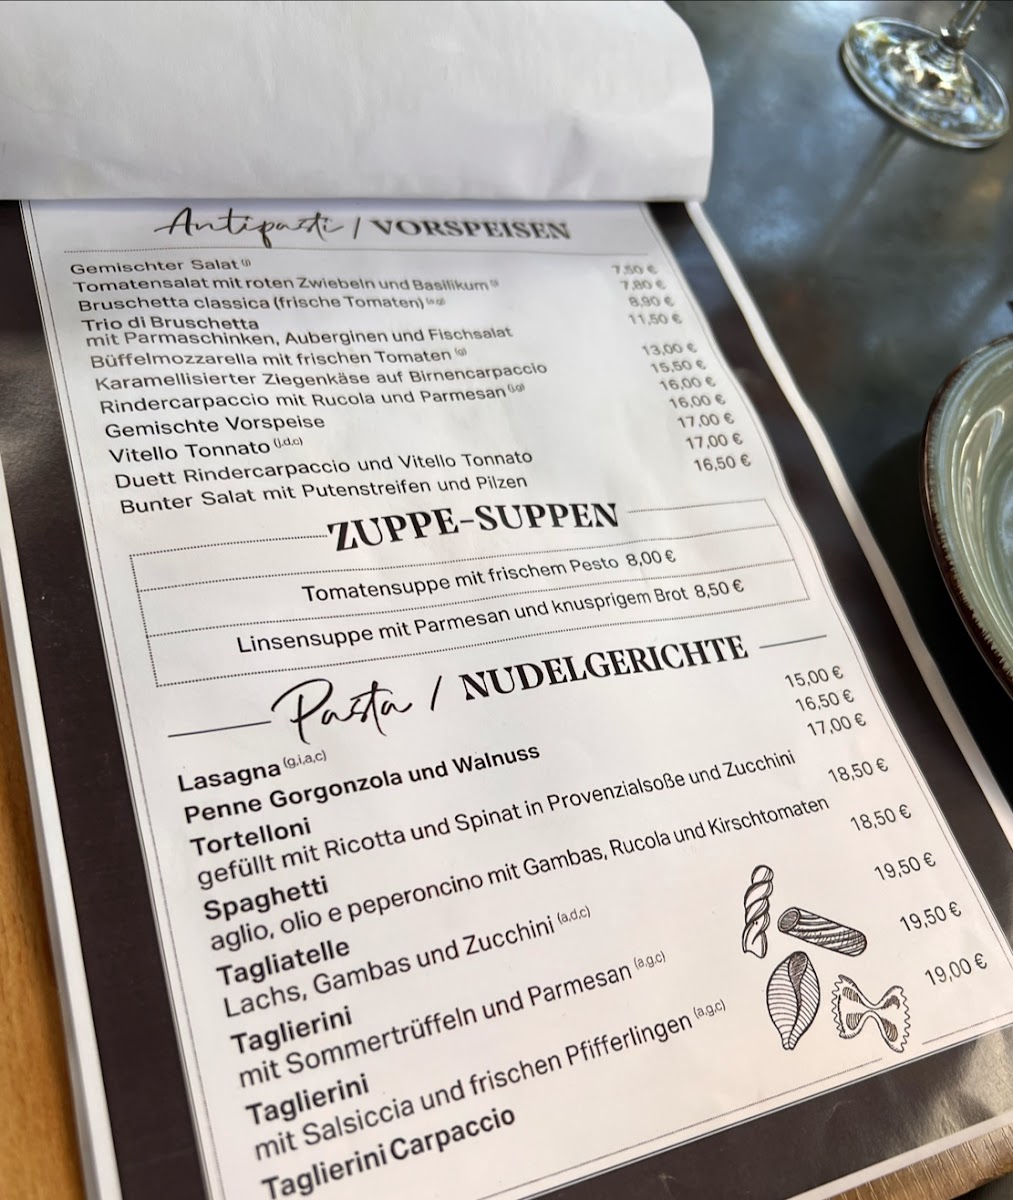 Antipasti / VORSPEISEN
Gemischter Salat (j) 7,50 €
Tomatensalat mit roten Zwiebeln und Basilikum 7,80 €
Bruschetta classica (frische Tomaten) 8,90 €
Trio di Bruschetta 11,50 €
mit Parmaschinken, Auberginen und Fischsalat
Büffelmozzarella mit frischen Tomaten (g) 13,00 €
Karamellisierter Ziegenkäse auf Birnencarpaccio 15,50 €
Rindercarpaccio mit Rucola und Parmesan (j,g) 16,00 €
Gemischte Vorspeise 16,00 €
Vitello Tonnato (j,d,c) 17,00 €
Duett Rindercarpaccio und Vitello Tonnato 17,00 €
Bunter Salat mit Putenstreifen und Pilzen 16,50 €
ZUPPE-SUPPEN
Tomatensuppe mit frischem Pesto 8,00 €
Linsensuppe mit Parmesan und knusprigem Brot 8,50 €
Pasta / NUDELGERICHTE
Lasagna (g,i,a,c) 15,00 €
Penne Gorgonzola und Walnuss 16,50 €
Tortelloni 17,00 €
gefüllt mit Ricotta und Spinat in Provenzialsoße und Zucchini
Spaghetti 18,50 €
aglio, olio e peperoncino mit Gambas, Rucola und Kirschtomaten
Tagliatelle 18,50 €
Lachs, Gambas und Zucchini (a,d,c)
Taglierini 19,50 €
mit Sommertrüffeln und Parmesan (a,g,c)
Taglierini 19,50 €
mit Salsiccia und frischen Pfifferlingen (a,g,c)
Taglierini Carpaccio 19,00 €